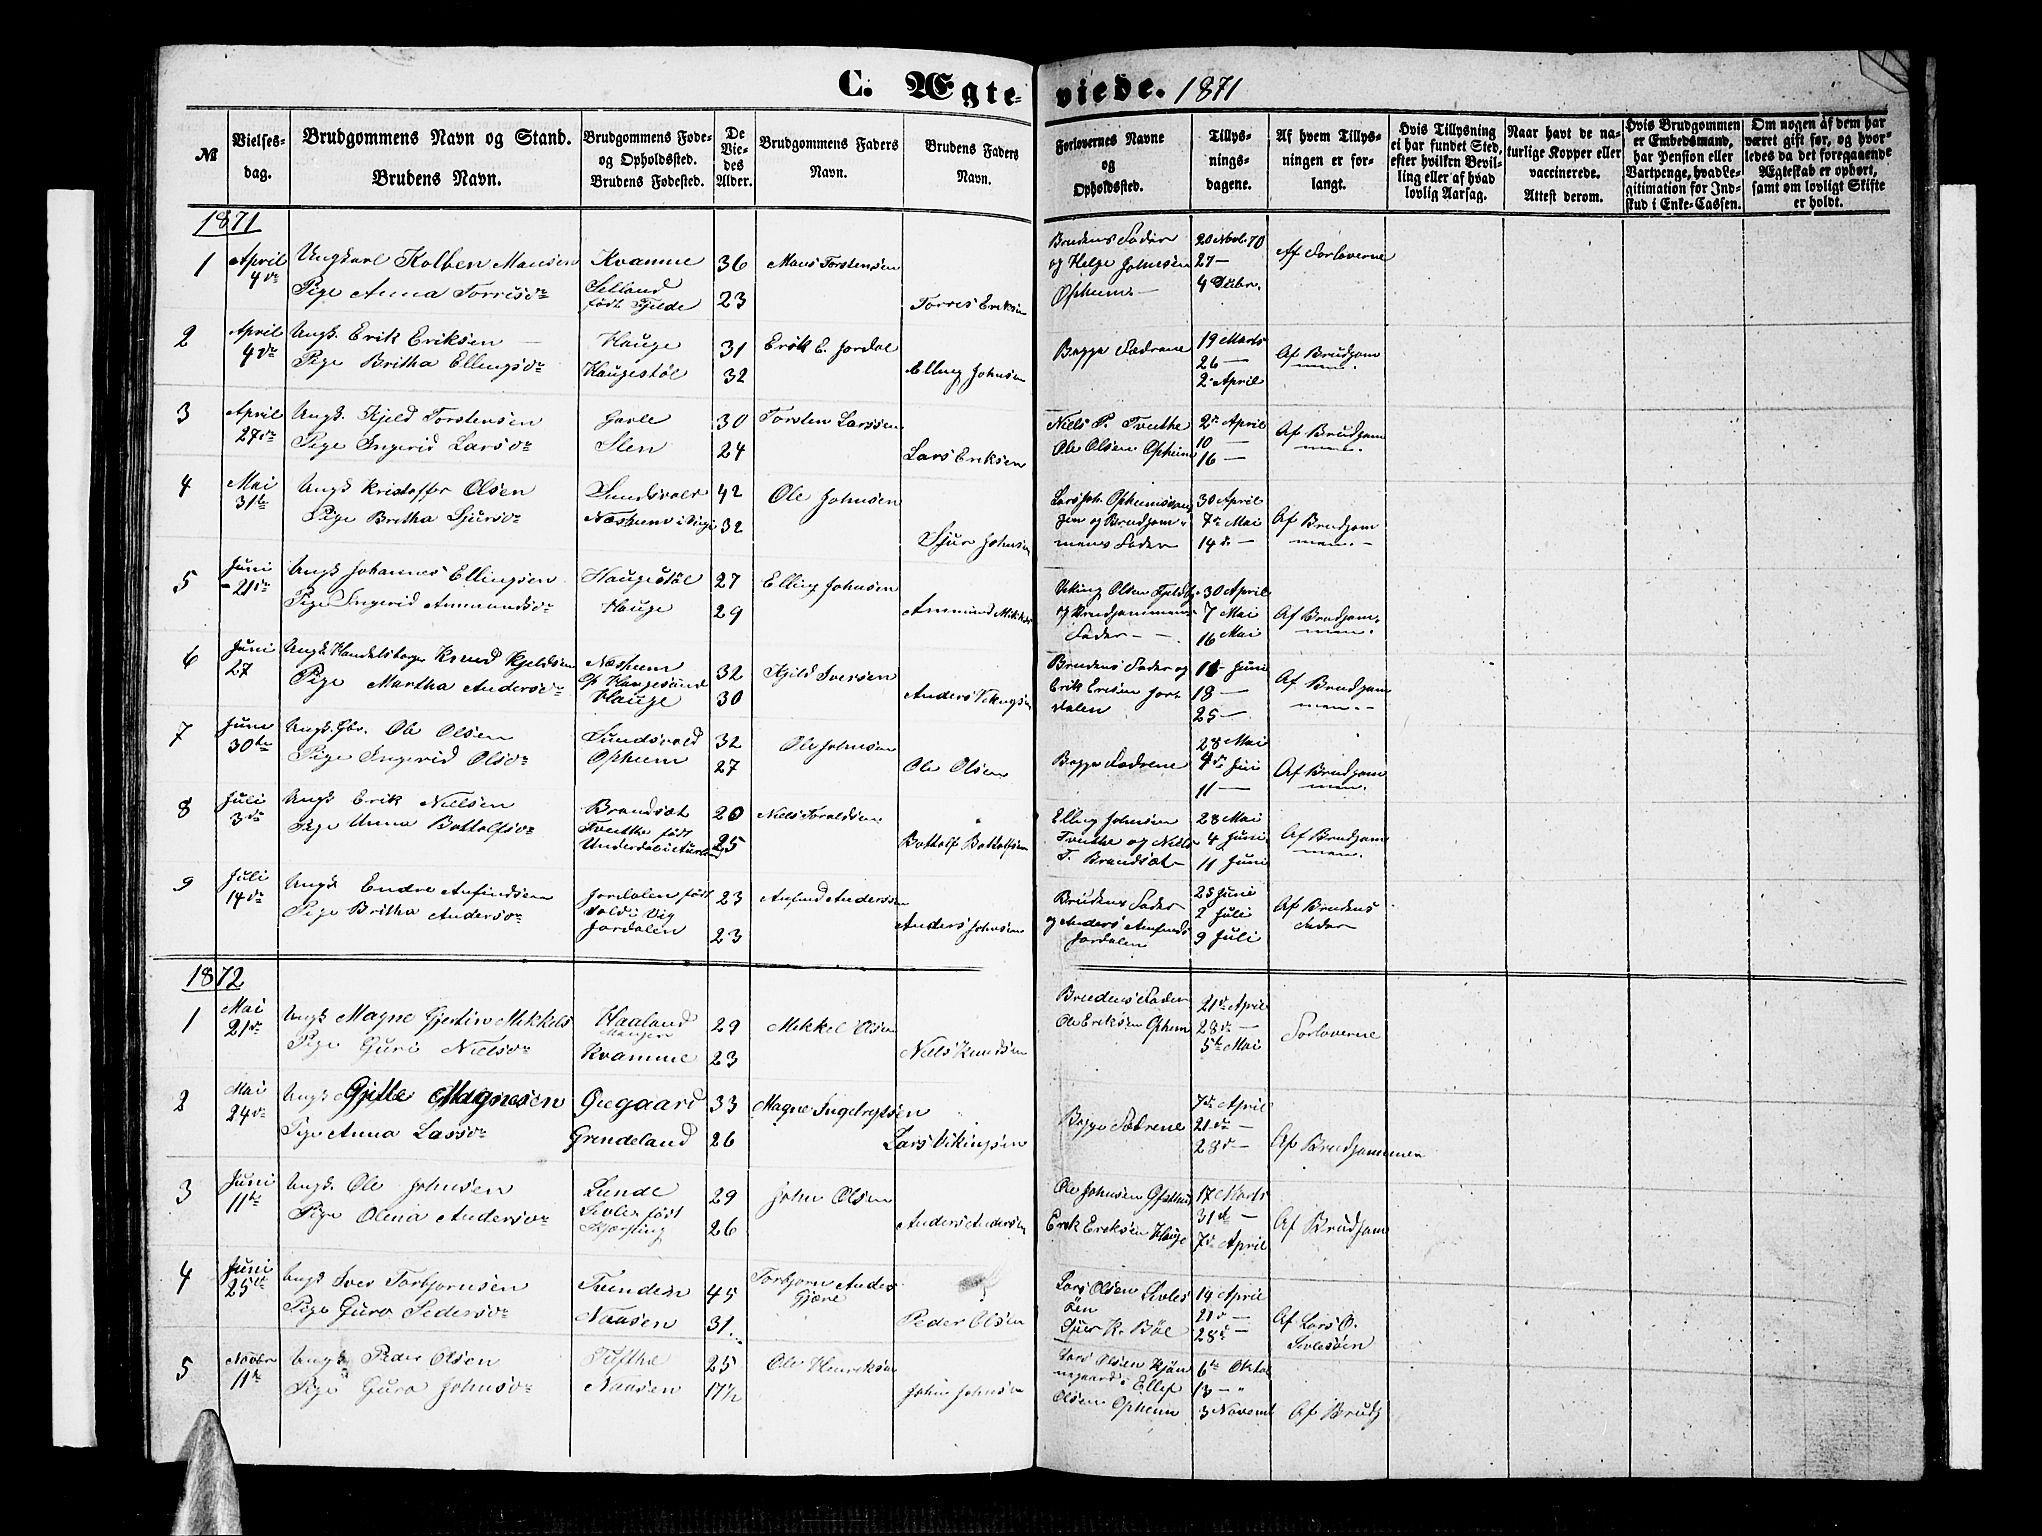 C. Ægte-
viede. 1871
№
Vielses-
dag.
Brudgommens Navn og Stand.
Brudens Navn.
Brudgommens Føde-
og Opholdssted.
Brudens Fødested.
De
Vie-
des
Alder.
Brudgommens Faders
Navn.
Brudens Faders
Navn.
Forlovernes Navne
og
Opholdssted.
Tillys-
nings-
dagene.
Af hvem Tillys-
ningen er for-
langt.
Hvis Tillysning
ei har fundet Sted,
efter hvilken Bevil-
ling eller af hvad
lovlig Aarsag.
Naar havt de na-
turlige Kopper eller
vaccinerede.
Attest derom.
Hvis Brudgommen
er Embedsmand,
har Pension eller
Vartpenge, hvad Le-
gitimation for Ind-
skud i Enke-Cassen.
Om nogen af dem har
været gift før, og hvor-
ledes da det foregaaende
Ægteskab er ophørt,
samt om lovligt Skifte
er holdt.
1871
1 April Ungkarl Kolben Monsen Kvamme 36 Mons Torstensen
4de Pige Anna Torrisdr Selland født Fjelde 23 Torres Eriksen
Brudens Fader 20 Novb. 70 Af Forloverne
og Helge Johnsen 27 —
Opheim. — 4 Debr.
2 April Ungk. Erik Eriksen — Hauge 31 Erik E. Jordal
4de Pige Britha Ellingsdr Haugestøl 32 Elling Johnsen
Begge Fædrene 19 Marts Af Brudgom
26 — men.
2 April
3 April Ungk. Kjeld Torstensen Gavle 30 Torsten Larssen
27de Pige Ingerid Larsdr Sten 24 Lars Eriksen
Niels P. Tvinthe 2den April Af Brudgom
Ole Olsen Opheim 10 — men.
16 —
4 Mai Ungk Kristoffer Olsen Sundsvold 42 Ole Johnsen
31te Pige Britha Sjursdr Næsheim i Vigø 32 Sjur Johnsen
30 April
og Brudgom- 7de Mai Af Brudgom
mens Fader 14d. — men. —
5 Juni Ungk Johannes Ellingsen Haugestøl 27 Elling Johnsen
21de Pige Ingerid Ammundsdr Hauge 29 Ammund Mikkels
Viking Olsen 30 April
og Brudgommens 7 Mai Af Brudgom-
Fader — — 16 Mai men.
6 Juni Ungk. Handelsborger Knud Kjeldsen Næsheim 32 Kjeld Iversen
27 Pige Martha Andersdr Op. Haugesund
Hauge 30 Anders Vikingsen
Brudens Fader og 11 Juni Af Brudgom
Erik Eriksen Jor- 18 — men. —
dalen 25 —
7 Juni Ungk. Gbr. Ole Olsen Sundsvold 32 Ole Johnsen
30te Pige Ingerid Olsdr Opheim 27 Ole Olsen
28 Mai
Begge Fædrene 4de Juni Af Brudgom
11 — men.
8 Juli Ungk Erik Nielsen Brandsæt 20 Niels Toraldsen
3de Pige Anna Bottolfsdr Tvinthe født
25 Bottolf Bottolfsen
Elling Johnsen 28 Mai
Tvinthe og Niels 4 Juni Af Brudgom
T. Brandsæt 11 Juni men.
9 Juli Ungk Endre Anfindsen Jordalen født 23 Anfind Andersen
14de Pige Britha Andersdr
Jordalen 23 Anders Johnsen
Brudens Fader 25 Juni
og Anders Anfinds 2 Juli Af Brudens
Jordalen 9 Juli Fader
1872
1 Mai Ungk Magne Gjertin Mikkels Haaland 29 Mikkel Olsen
21de Pige Guri Nielsdr Kvamme 23 Niels Knudsen
Brudens Fader 21d April
Ole Eriksen Opheim 28d — Forloverne
5te Mai
2 Mai Ungk Gjelle Magnesen Øregaard 33 Magne Ingebrigtsen
24de Pige Anna Larsdr Grendeland 26 Lars Vikingsen
7de April
Begge Fædrene 21de —
28d — Af Brudgommen
3 Juni Ungk. Ole Johnsen Lunde 29 John Olsen
11te Pige Olena Andersdr Sivle født 26 Anders Andersen
Ole Johnsen 17 Marts
31d — Af Brudgom
Erik Eriksen Hauge 7de April
4 Juni Ungk Iver Torbjornsen Tvinden 45 Torbjorn Anders
Gjære
25de Pige Guro Pedersdr Naasen 31. Peder Olsen
Lars Olsen Sivles 14 April
øen 21d — Af Lars O.
Sjur K. Bøe 28d — Sivlesøen
5 Novbr Ungk Peder Olsen Tufthe 25 Ole Henriksen
11te Pige Guro Johnsdr Naasen 17½ John Johnsen
Lars Olsen 6te Oktob
Ellef 13 — "
Olsen Opheim 3 Novemb Af Brudg